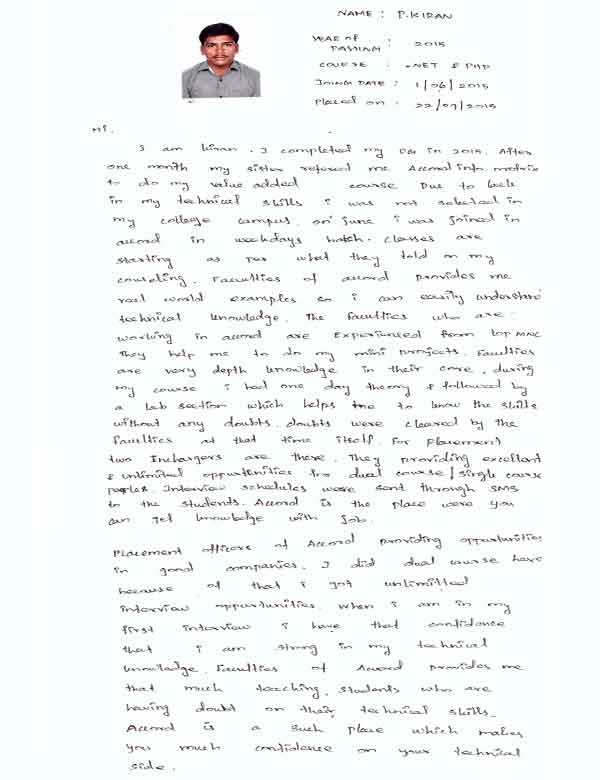 NAME : P.KIRAN
YEAR OF PASSING : 2015
COURSE : .NET & PHP
JOING DATE : 1/06/2015
Placed on : 22/07/2015
Hi.
I am kiran. I completed my in 2015. After
one month my sister refered me Accord info matrix
to do my value added course Due to lack
in my technical skills i was not selected in
my college campus. on June i was joined in
accord in weekdays batch. classes are
starting as per what they told on my
counseling. Faculties of accord provides me
real world examples so i can easily understand
technical knowledge. The faculties who are
working in accord are Experienced from top MNC
They help me to do my mini projects. Faculties
are very depth knowledge in their core. during
my course i had one day theory & followed by
a lab section which helps me to know the skills
without any doubts. doubts were cleared by the
faculties at that time itself. For placement
two Inchargers are there. They providing excellent
& unlimited oppurtunities for dual course/single course
peoples. Interview schedules were sent through SMS
to the students. Accord is the place were you
can get knowledge with Job.
Placement officers of Accord providing oppurtunities
in good companies. I did dual course here
because of that i got unlimitted
interview oppurtunities. When i am in my
first interview i have that confidence
that i am strong in my technical
knowledge. Faculties of Accord provides me
that much teaching. Students who are
having doubt on their technical skills.
Accord is a such place which makes
you much confidence on your technical
side.